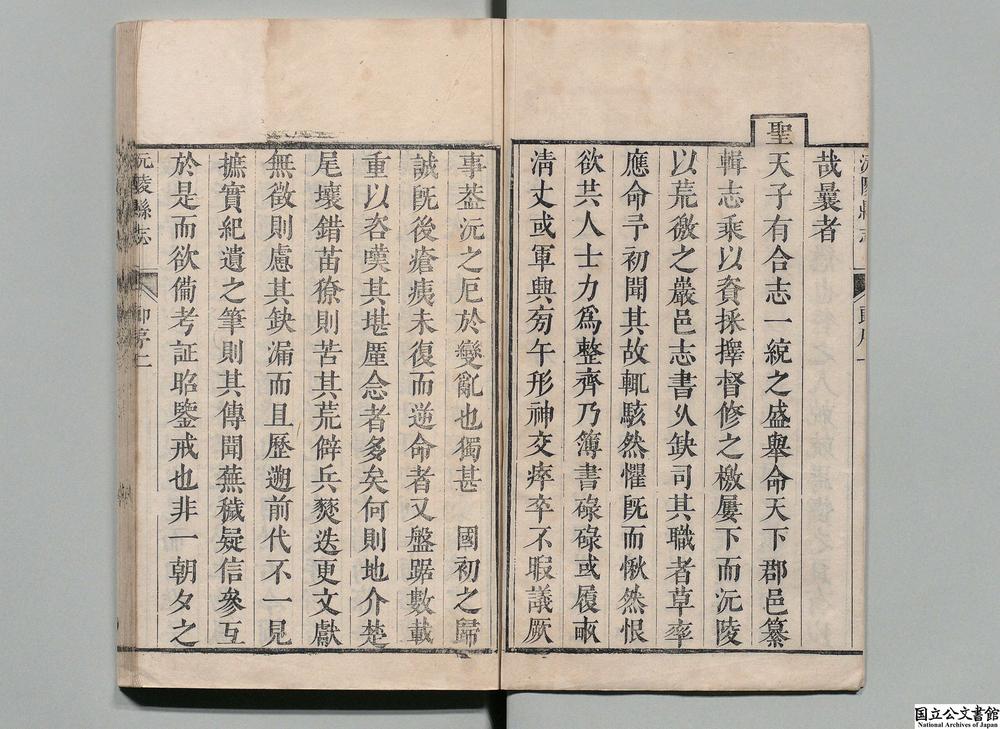 哉曩者
聖
天子有合志一統之盛舉命天下郡邑纂
輯志乘以資採擇督修之檄屢下而沅陵
以荒徼之嚴邑志書久缺司其職者草率
應命予初聞其故輒駭然懼既而愀然恨
欲共人士力為整齊乃簿書碌碌或履畝
清丈或軍興旁午形神交瘁卒不暇議厥
事葢沅之厄於變亂也獨甚 國初之歸
誠既後瘡痍未復而逆命者又盤踞數載
重以咨嘆其堪厪念者多矣何則地介楚
尾壤錯苗獠則苦其荒僻兵燹迭更文獻
無徵則慮其缺漏而且歷遡前代不一見
摭實紀遺之筆則其傳聞蕪穢疑信參互
於是而欲備考証昭鑒戒也非一朝夕之
沅陵縣志
郎序二
国立公文書館
National Archives of Japan